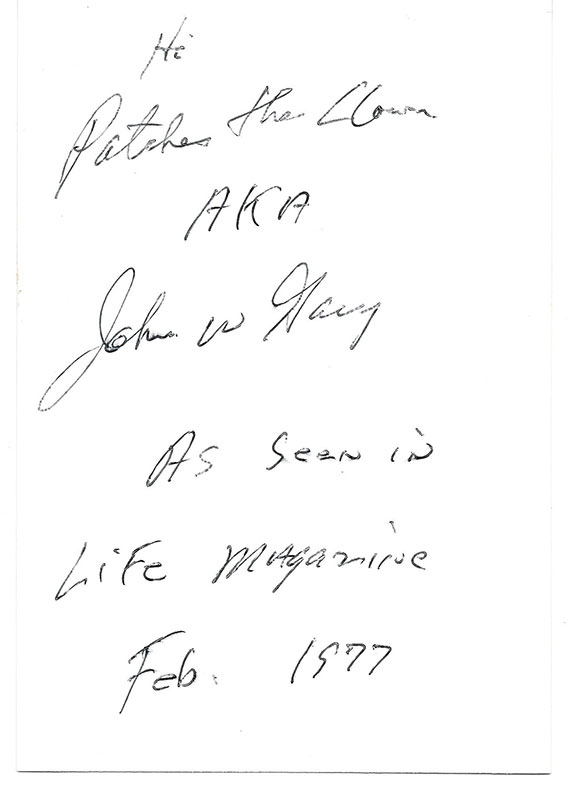 Hi
Patches the Clown
AKA
John W Gacy
As seen in
LiFe Magazine
Feb. 1977